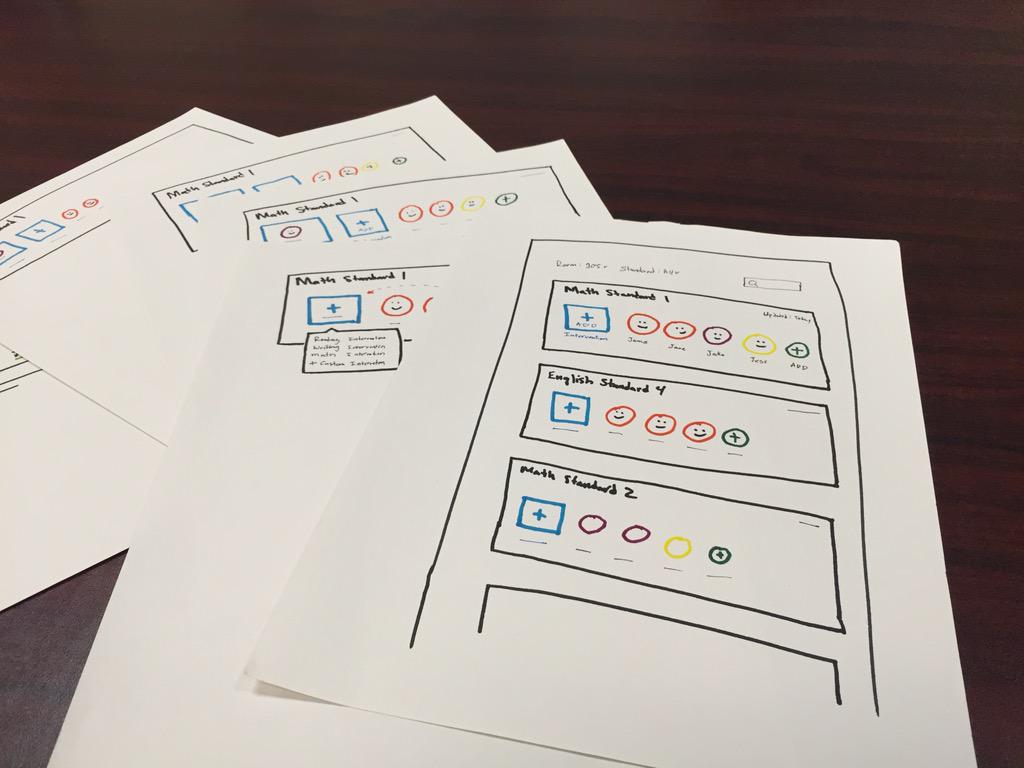 Math Standard 1
Math Standard 1
ADD
Math Standard 1
Reading Intervention
Writing Intervention
math Intervention
+ Custom Intervention
Updated: Today
Math Standard 1
ADD
Intervention
Jane
Jake
Jess
ADD
English Standard 4
Math Standard 2